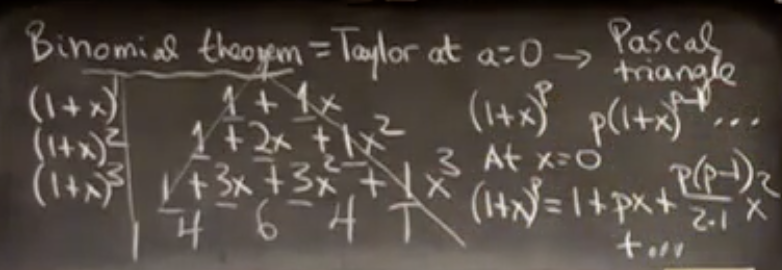 Binomial theorem = Taylor at a=0 → Pascal triangle
(1+x)¹ 1 + 1x
(1+x)² 1 + 2x + 1x²
(1+x)³ 1 + 3x + 3x² + 1x³
1 4 6 4 1
(1+x)ᵖ p(1+x)ᵖ⁻¹ ...
At x=0
(1+x)ᵖ = 1 + px + p(p-1)/2·1 x²
+ ...